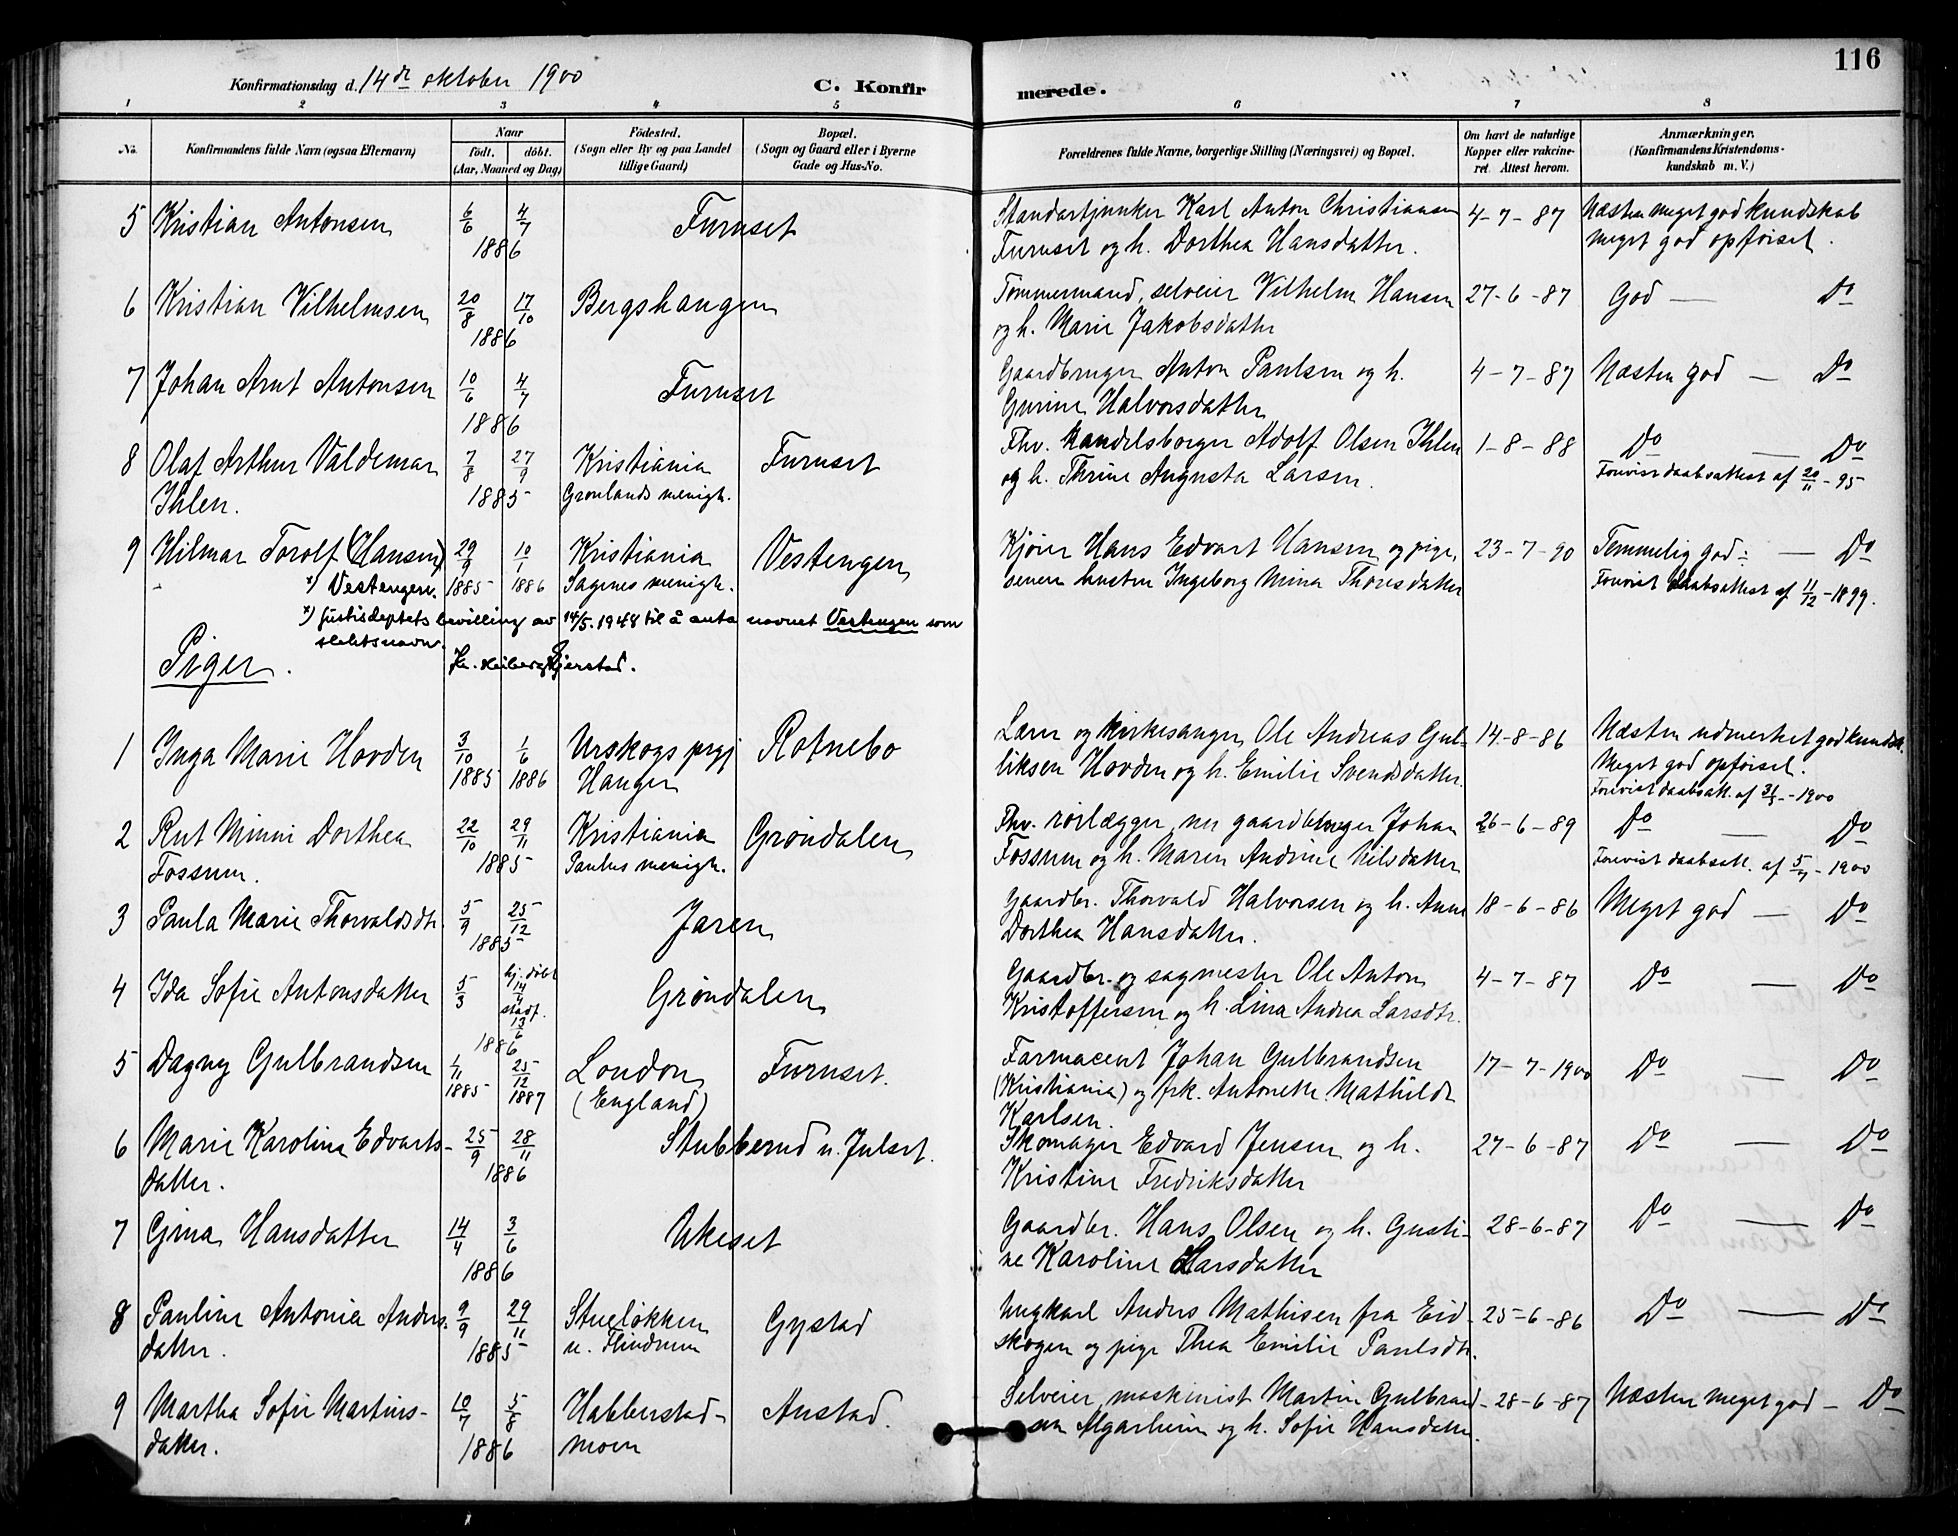 116
Konfirmationsdag d. 14de oktober 1900
C. Konfirmerede.
1 2 3 4 5 6 7 8
No. Konfirmandens fulde Navn (ogsaa Efternavn) Naar födt. döbt. (Aar, Maaned og Dag) Födested. (Sogn eller By og paa Landet tillige Gaard) Bopæl. (Sogn og Gaard eller i Byerne Gade og Hus-No. Forældrenes fulde Navne, borgerlige Stilling (Næringsvei) og Bopæl. Om havt de naturlige Kopper eller vakcineret. Attest herom. Anmærkninger. (Konfirmandens Kristendomskundskab m. V.)
5 Kristian Antonsen 6/6 4/7 1886 Furuset Standartjunker Karl Anton Christiansen 4-7-87 Næsten meget god kundskab
Furuset og h. Dorthea Hansdatter. meget god opførsel.
6 Kristian Vilhelmsen 20/8 17/10 1886 Bergshaugen Tømmermand, selveier Vilhelm Hansen 27-6-87 God — Do
og h. Marie Jakobsdatter
7 Johan Arnt Antonsen 10/6 4/7 1886 Furuset Gaardbruger Anton Paulsen og h. 4-7-87 Næsten god — Do
Gurine Halvorsdatter
8 Olaf Arthur Valdemar 7/8 27/9 1885 Kristiania Furuset Fhv. handelsborger Adolf Olsen Ihlen 1-8-88 Do — Do
Ihlen. Grønlands menigh. og h. Thrine Augusta Larsen. Forevist daabsattest af 20/11-95
9 Hilmar Torolf (Hansen) 29/9 10/1 Kristiania Vestengen Kjører Hans Edvart Hansen og pige, 23-7-90 Temmelig god — Do
x) Vestengen. 1885 1886 Sagenes menigh. senere hustru Ingeborg Mina Thoresdatter Forevist daabsattest af 11/12-1899.
x) Justisdeptets bevilling av 14/5.1948 til å anta navnet Vestengen som
slektsnavn.
Piger.
1 Inga Marie Hovden 3/10 1/6 Urskogs prgj Rotnebo Lærer og kirkesanger Ole Andreas Gul- 14-8-86 Næsten udmerket god kundsk.
1885 1886 Hanger liksen Hovden og h. Emilie Svendsdatter. Meget god opførsel.
Forevist daabsatt. af -1900
2 Rut Minni Dorthea 22/10 29/11 Kristiania Grøndalen Fhv. rørlægger, nu gaardbruger Johan 26-6-89 Do — Do
Fossum. 1885 Paulus menigh. Fossum og h. Maren Andrine Nilsdatter Forevist daabsatt. af -1900
3 Paula Marie Thorvaldsdtr. 5/9 25/12 1885 Jaren Gaardbr. Thorvald Halvorsen og h. Anne 18-6-86 Meget god — Do
Dorthea Hansdatter.
4 Ida Sofie Antonsdatter 5/3 hj. døbt 14/4 stadf. 13/6 1886 Grøndalen Gaardbr. og sagmester Ole Anton 4-7-87 Do — Do
Kristoffersen og h. Lina Andrea Larsdtr.
5 Dagny Gulbrandsen 1/11 25/12 London Furuset. Farmaceut Johan Gulbrandsen 17-7-1900 Do — Do
1885 1887 (England) (Kristiania) og frk. Antonette Mathilde
Karlsen.
6 Marie Karoline Edvarts- 25/9 28/11 Stubberud u. Julset. Skomager Edvard Jensen og h. 27-6-87 Do — Do
datter. 1886 Kristine Fredriksdatter
7 Gina Hansdatter 14/4 3/6 1886 Ukeset Gaardbr. Hans Olsen og h. Gusti- 28-6-87 Do — Do
ne Karoline Larsdatter
8 Pauline Antonia Anders- 9/9 29/11 Stueløkken Gystad Ungkarl Anders Mathisen fra Eid- 25-6-86 Do — Do
datter. 1885 u. Flindrum skogen og pige Thea Emilie Paulsdtr.
9 Martha Sofie Martins- 10/7 5/8 Habberstad- Anstad. Selveier, maskinist Martin Gulbrand- 28-6-87 Næsten meget god — Do
datter. 1886 moen sen Algarheim og h. Sofie Hansdatter.